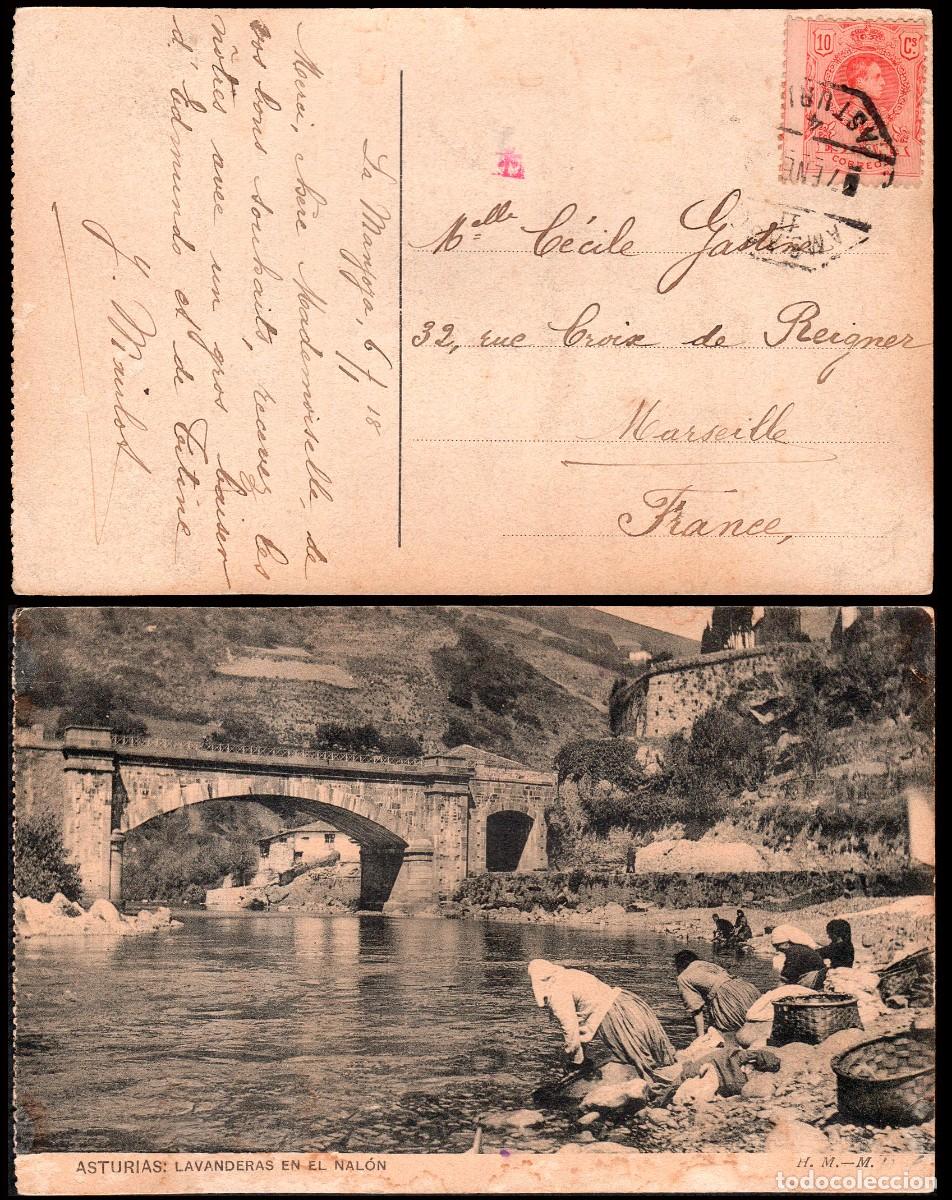 La Manjoya, 6/1 18
Merci, chère Mademoiselle, de
vos bons souhaits, recevez les
nôtres avec un gros baiser
d'Edmundo et de Titine
J. Mailot
10 Cs
CORREOS
ASTURI
7 ENE
Melle Cécile Gastine
32, rue Croix de Reigner
Marseille
France,
ASTURIAS: LAVANDERAS EN EL NALÓN
H. M.—M.
todocoleccion